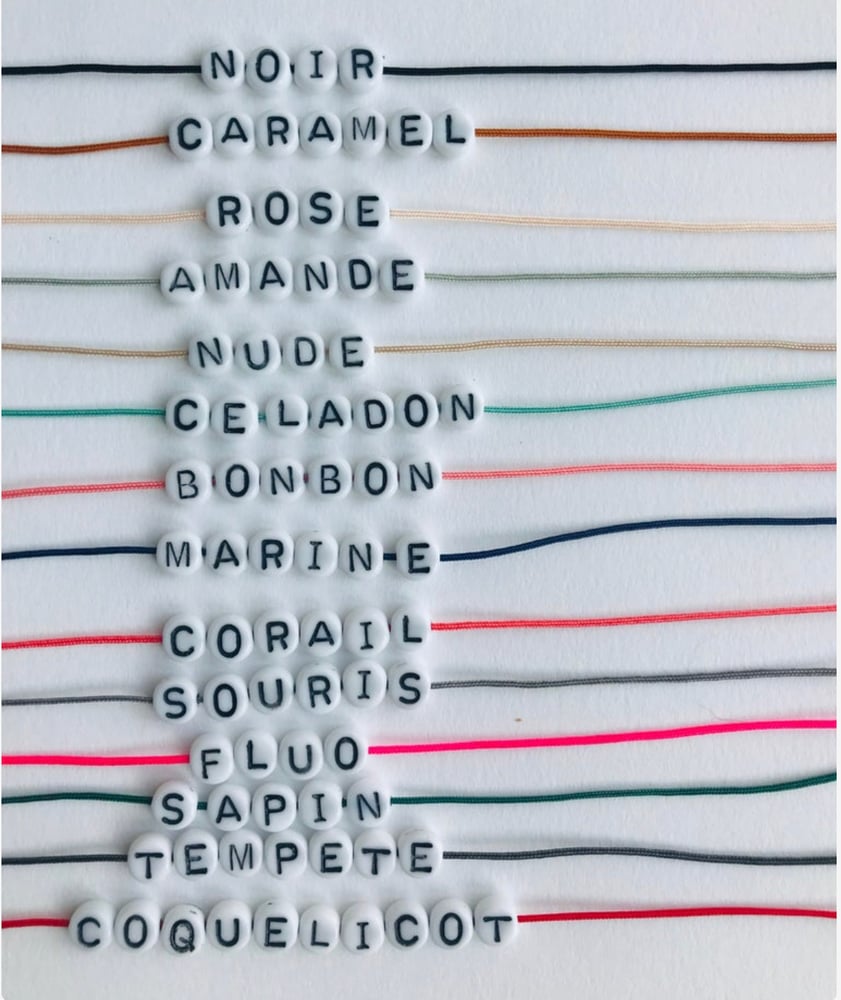 NOIR
CARAMEL
ROSE
AMANDE
NUDE
CELADON
BONBON
MARINE
CORAIL
SOURIS
FLUO
SAPIN
TEMPETE
COQUELICOT